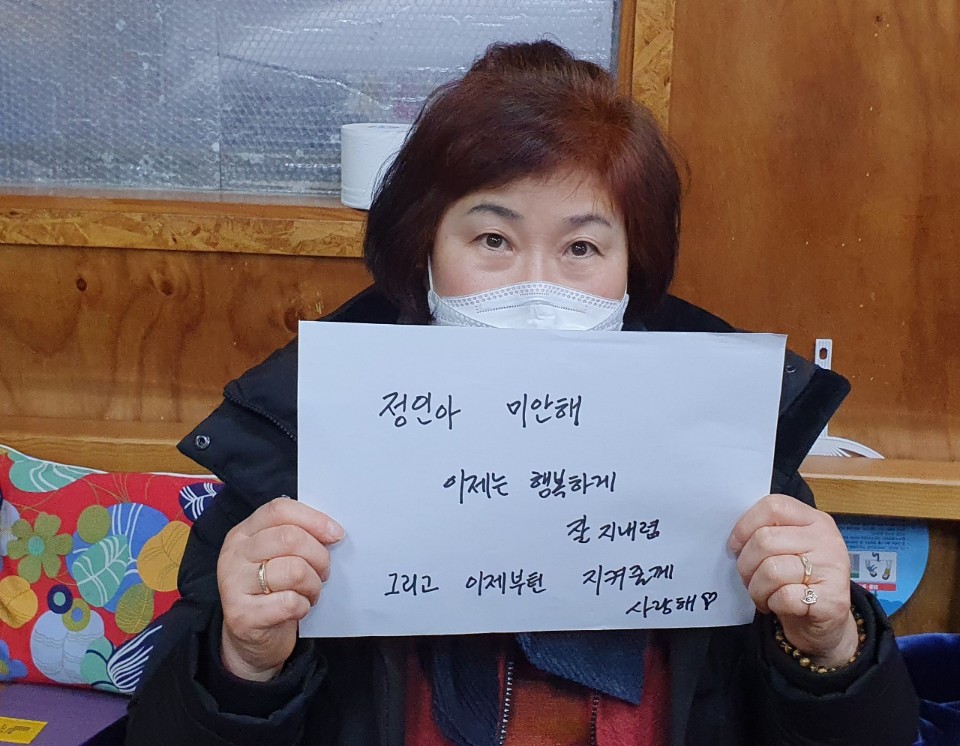 정인아 미안해
이제는 행복하게
잘 지내렴
그리고 이제부턴 지켜줄께
사랑해♡